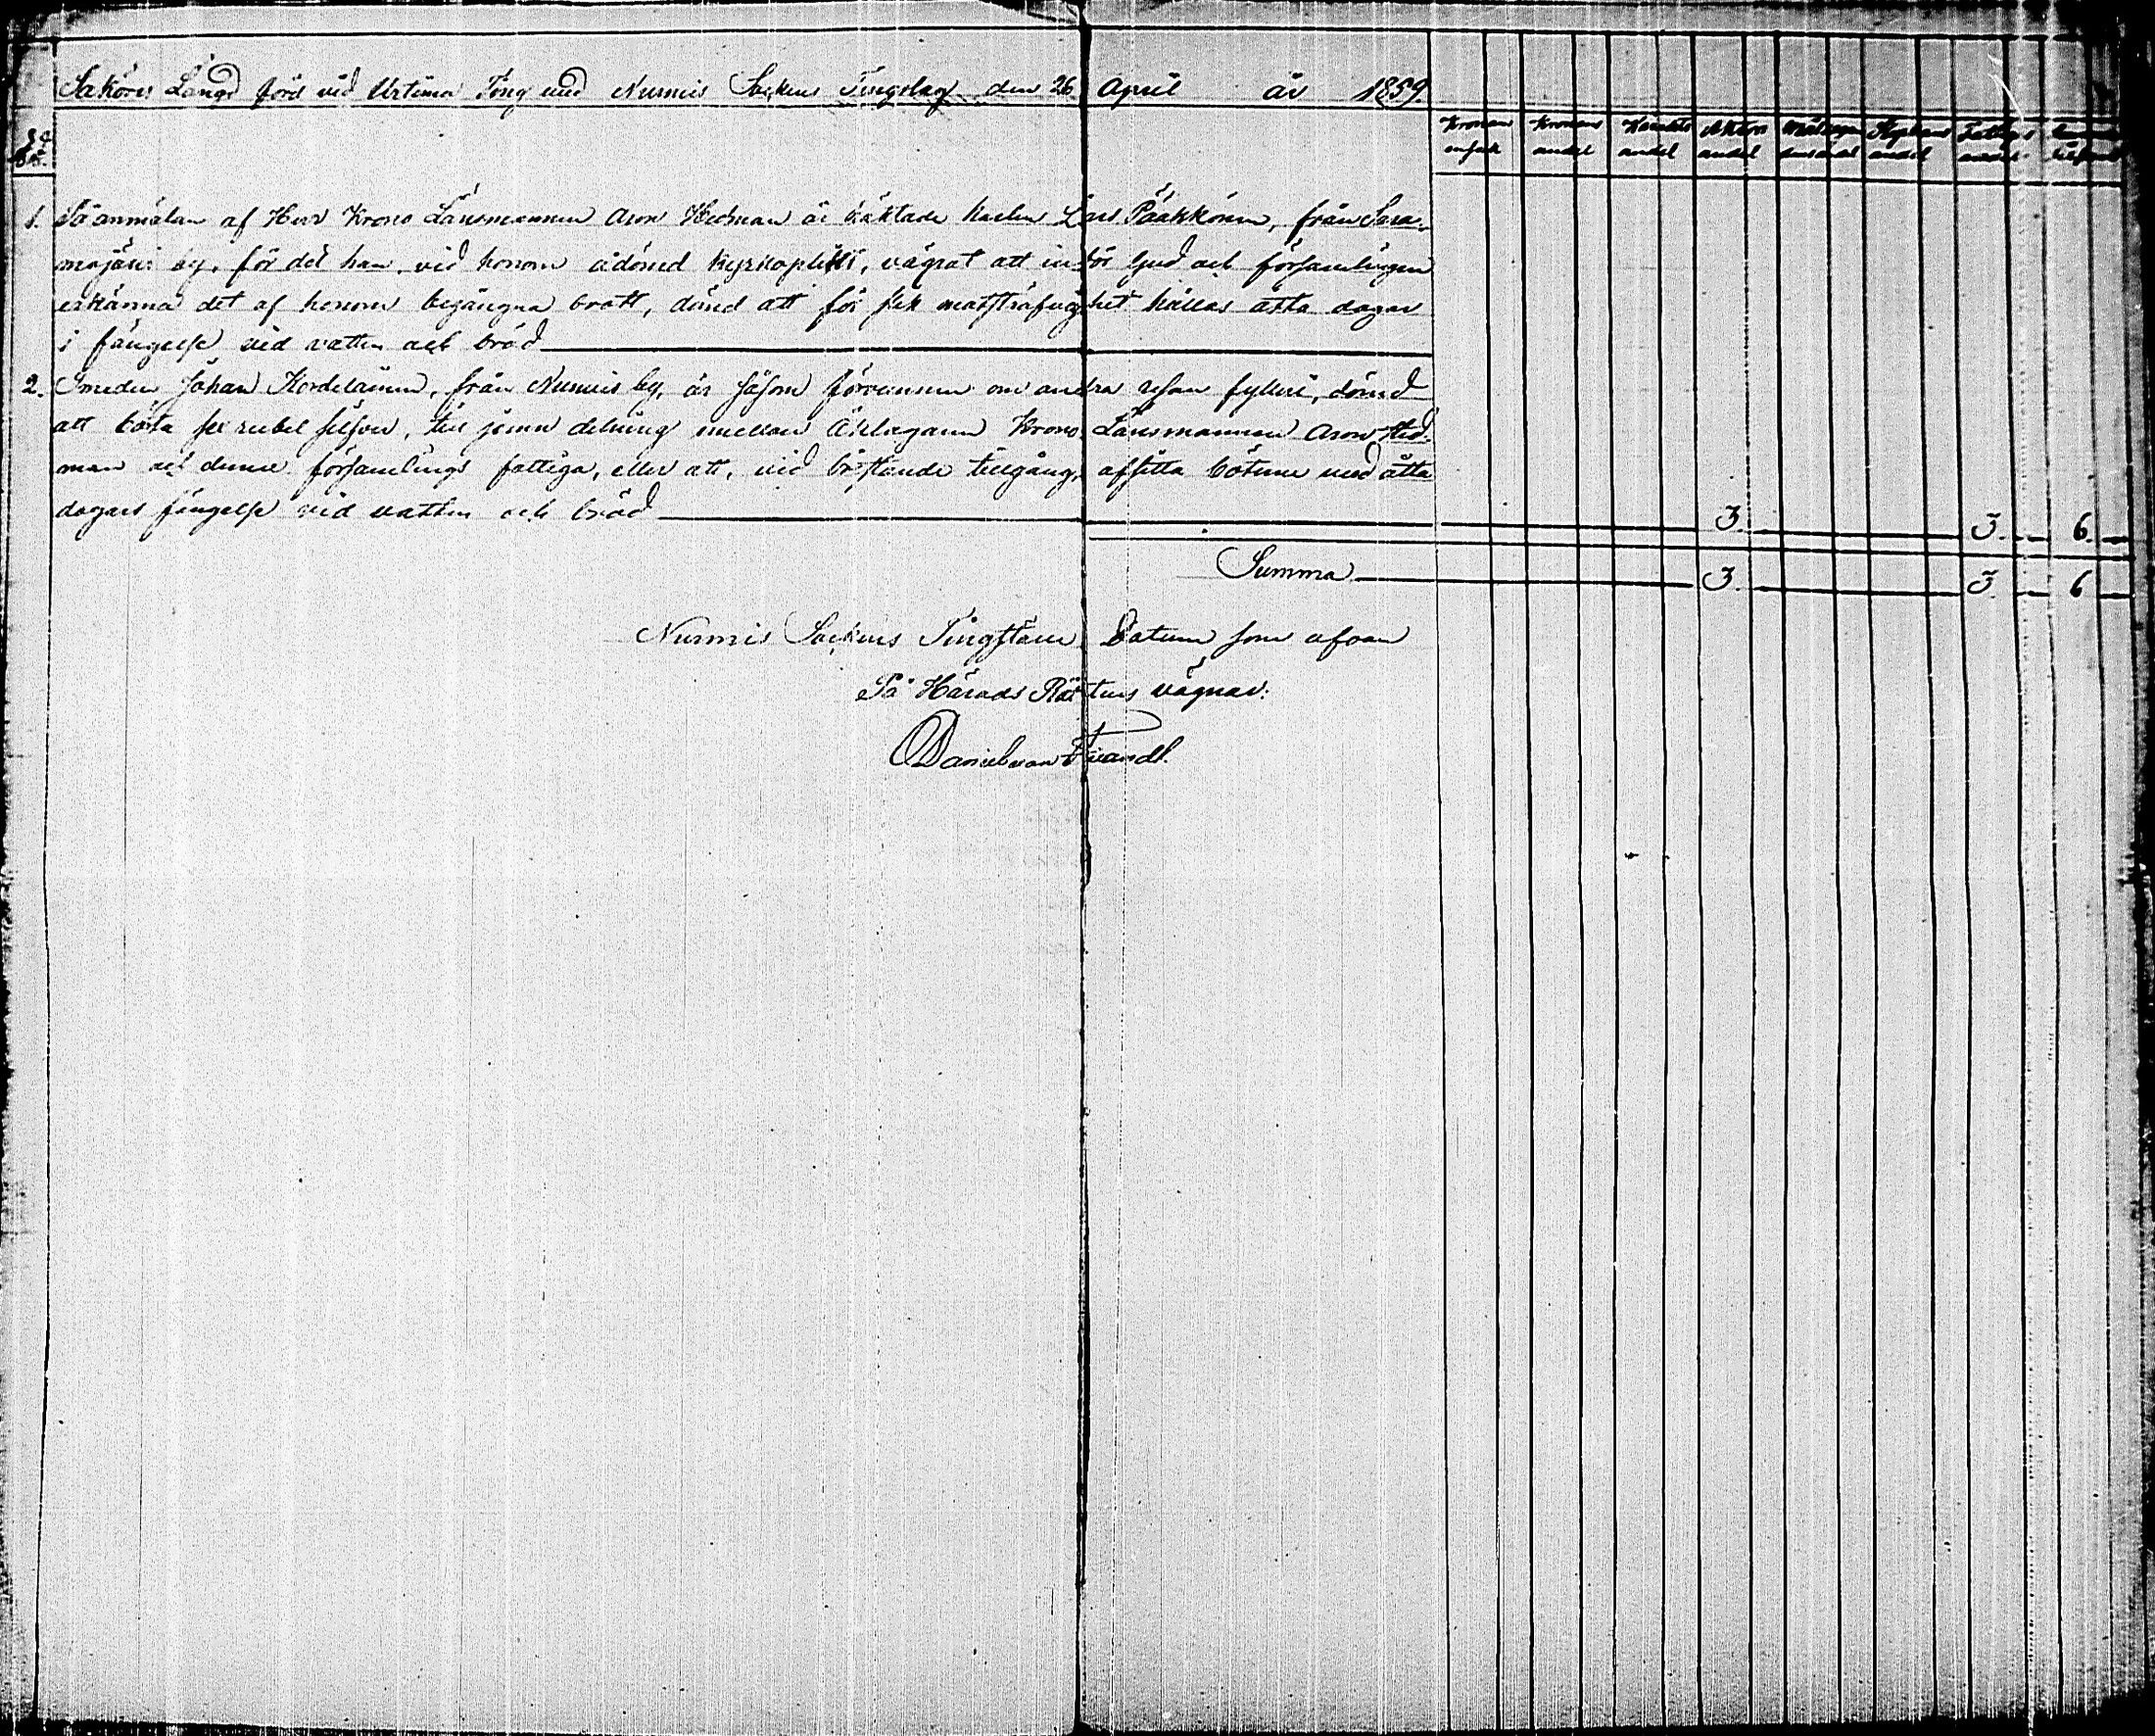 Saköres Längd förd vid Urtima Ting med Nurmis Sockens Tingslag den 26 April år 1859.
Kronan ensak Kronans andel Häradets andel Aktors andel Målsegan dens andel andel Fattigas andel
§§
1. På anmälan af Herr Krono Länsmannen Aron Hedman är häktade karlen Lars Pääkkönen, från Sara-
mojärvi by, för det han, vid honom ådömd kyrkoplikt, vägrat att inför Gud och församlingen
erkänna det af honom begångna brott, dömd att för slik motsträfvighet hållas åtta dagar
i fängelse vid vatten och bröd
2. Smeden Johan Kordelainen, från Nurmis by, är såsom förvunnen om andra resan fylleri, dömd
att böta sex rubel silfver, till jemn delning emellan Åklagaren Krono Länsmannen Aron Hed-
man och denne församlings fattiga, eller att, vid bristande tillgång, afsitta böterne med åtta
dagars fängelse vid vatten och bröd 3. 3. 6.
Summa 3. 3. 6
Nurmis Sockens Tingställe Datum som ofvan
På Härads Rättens vägnar:
Daniel